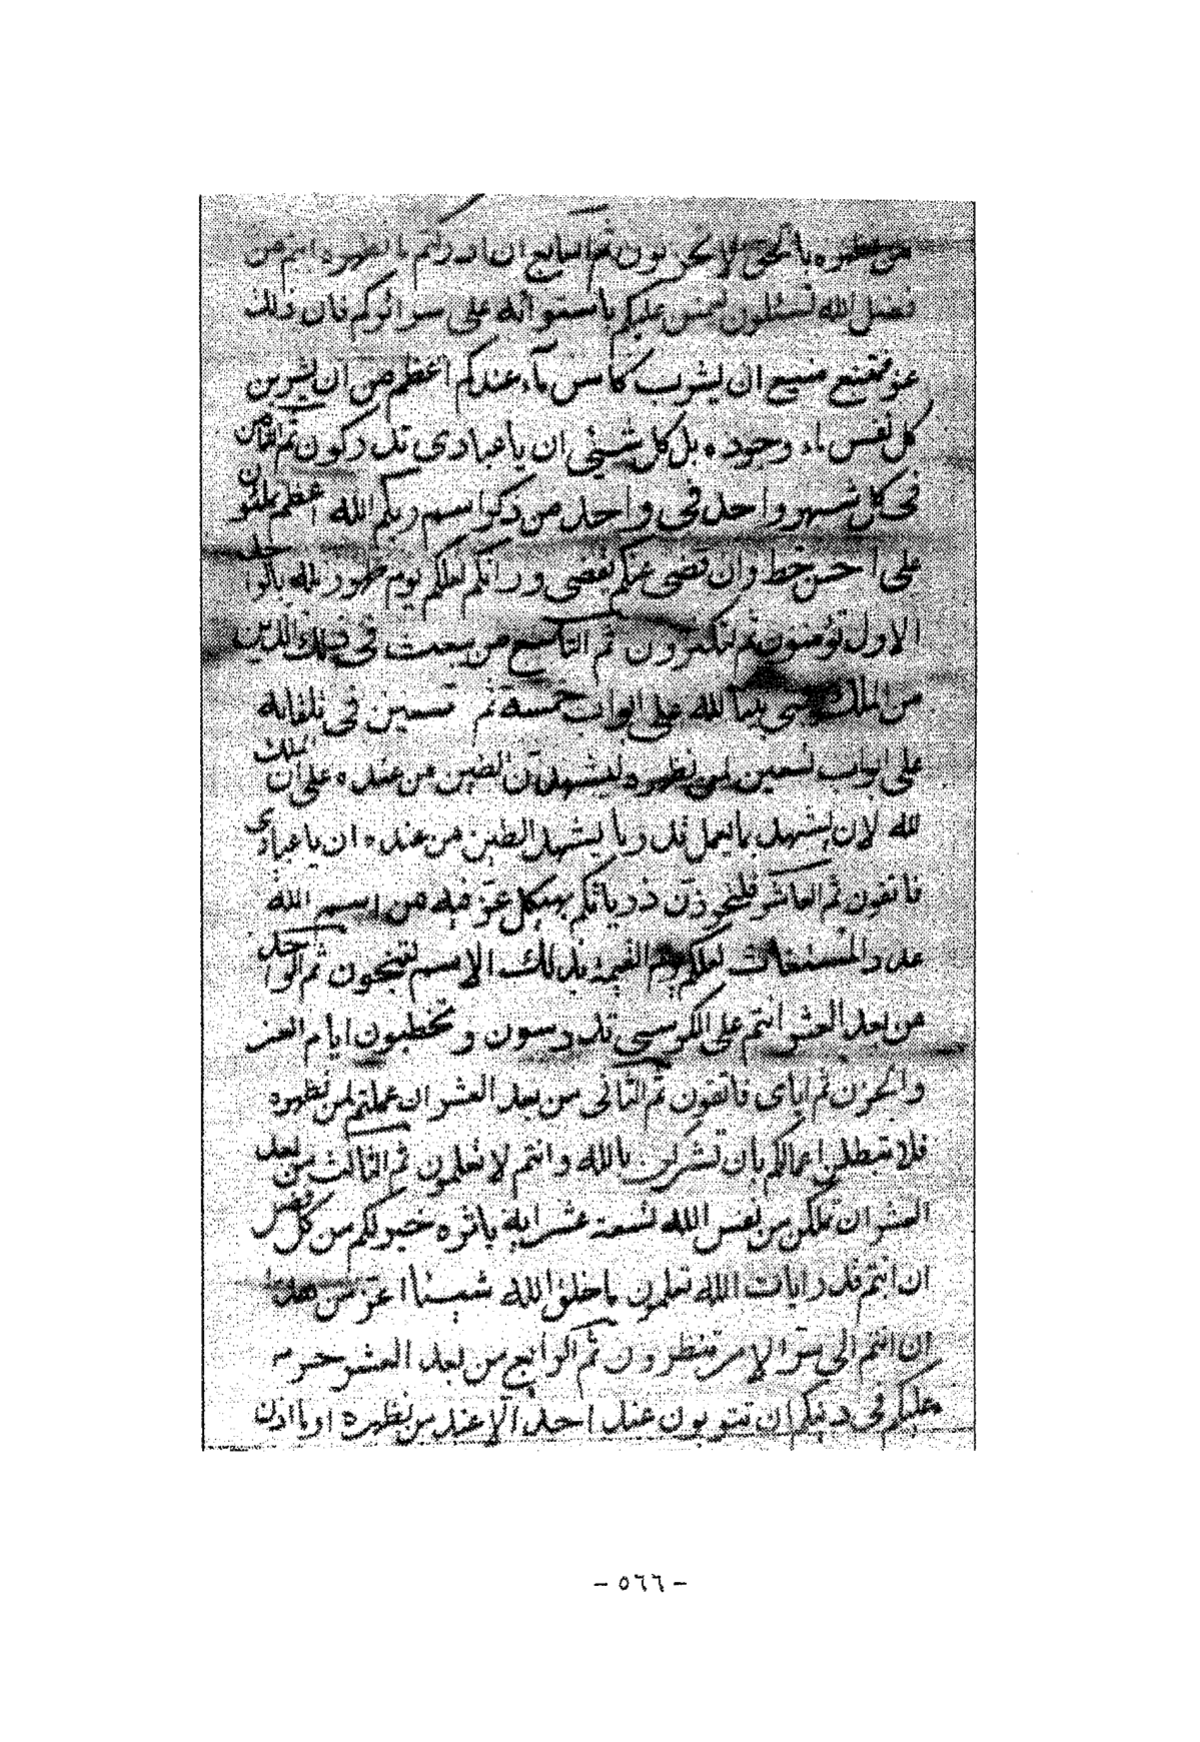 من نظهره بالحق لا تحزنون ثم السابع ان ادركتم ما نظهره انتم من
فضل الله لتسئلون ليمنن عليكم باستوائه على سرائركم فان ذلك
عز ممتنع منيع ان يشرب كأس ماء عندكم اعظم من ان يشربن
كل نفس ماء وجوده بل كل شيئ ان يا عبادى تدركون ثم الثامن
فى كل شهر واحد فى واحد من ذكر اسم ربكم الله اعظم تملئون
على احسن خط وان قضى عنكم يقضى وراثكم لعلكم يوم ظهور الله بالواحد
الاول تؤمنون ثم تكثرون ثم التاسع من يبعث فى ذلك الدين
من الملك يبنى بيتا لله على ابواب خمسة ثم تسعين فى تلقائه
على ابواب تسعين لمن نظهره ليشهدن الطين من عنده على ان الملك
لله لان يشهد بما يعمل قدر ما يشهد الطين من عنده ان يا عبادى
فاتقون ثم العاشر فلتحرزن ذرياتكم بهيكل عز فيه من اسم الله
عدد المستغاث لعلكم يوم القيمة بذلك الاسم لتنجون ثم الواحد
من بعد العشر انتم على الكرسى تدرسون وتخطبون ايام العز
والحزن ثم اياى فاتقون ثم الثانى من بعد العشر ان عملتم لمن نظهره
فلا تبطلن اعمالكم بان تشركن بالله وانتم لا تعلمون ثم الثالث من بعد
العشر ان تملكن من نفس الله تسعة عشر اية باثره خير لكم من كل فضل
ان انتم قدر ايات الله تعلمون ما خلق الله شيئا اعز من هذا
ان انتم الى سر الامر تنظرون ثم الرابع من بعد العشر حرم
عليكم فى دينكم ان تتوبون عند احد الا عند من نظهره او ما اذن
- ٥٦٦ -